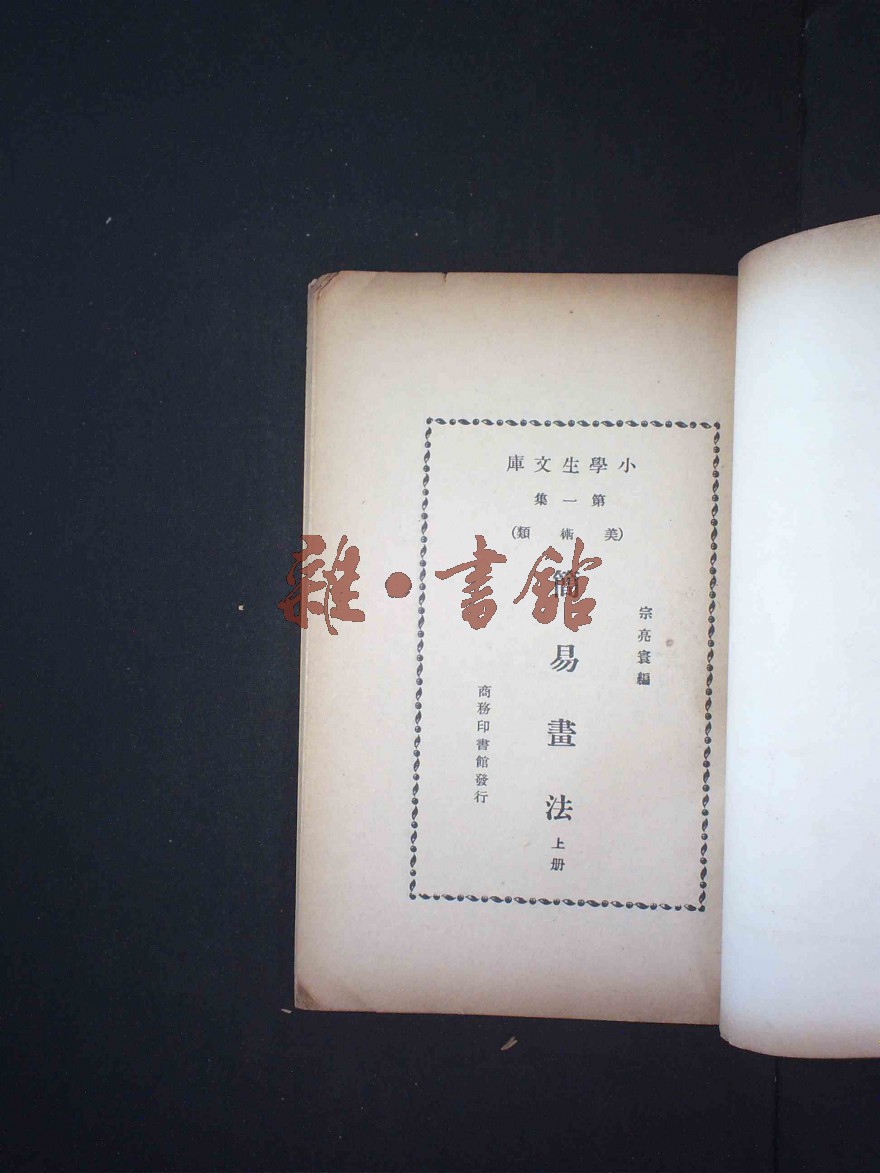 小學生文庫
第一集
(美術類)
宗亮寰編
簡易畫法上册
商務印書館發行
雜·書館